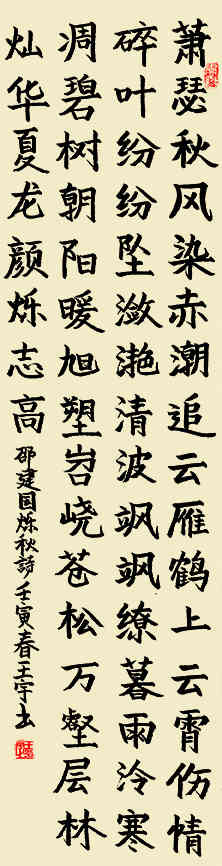 萧瑟秋风染赤潮追云雁鹤上云霄伤情
碎叶纷纷坠潋滟清波飒飒缭暮雨泠寒
凋碧树朝阳暖旭塑岧峣苍松万壑层林
灿华夏龙颜烁志高
邵建国烁秋詩壬寅春王宇书